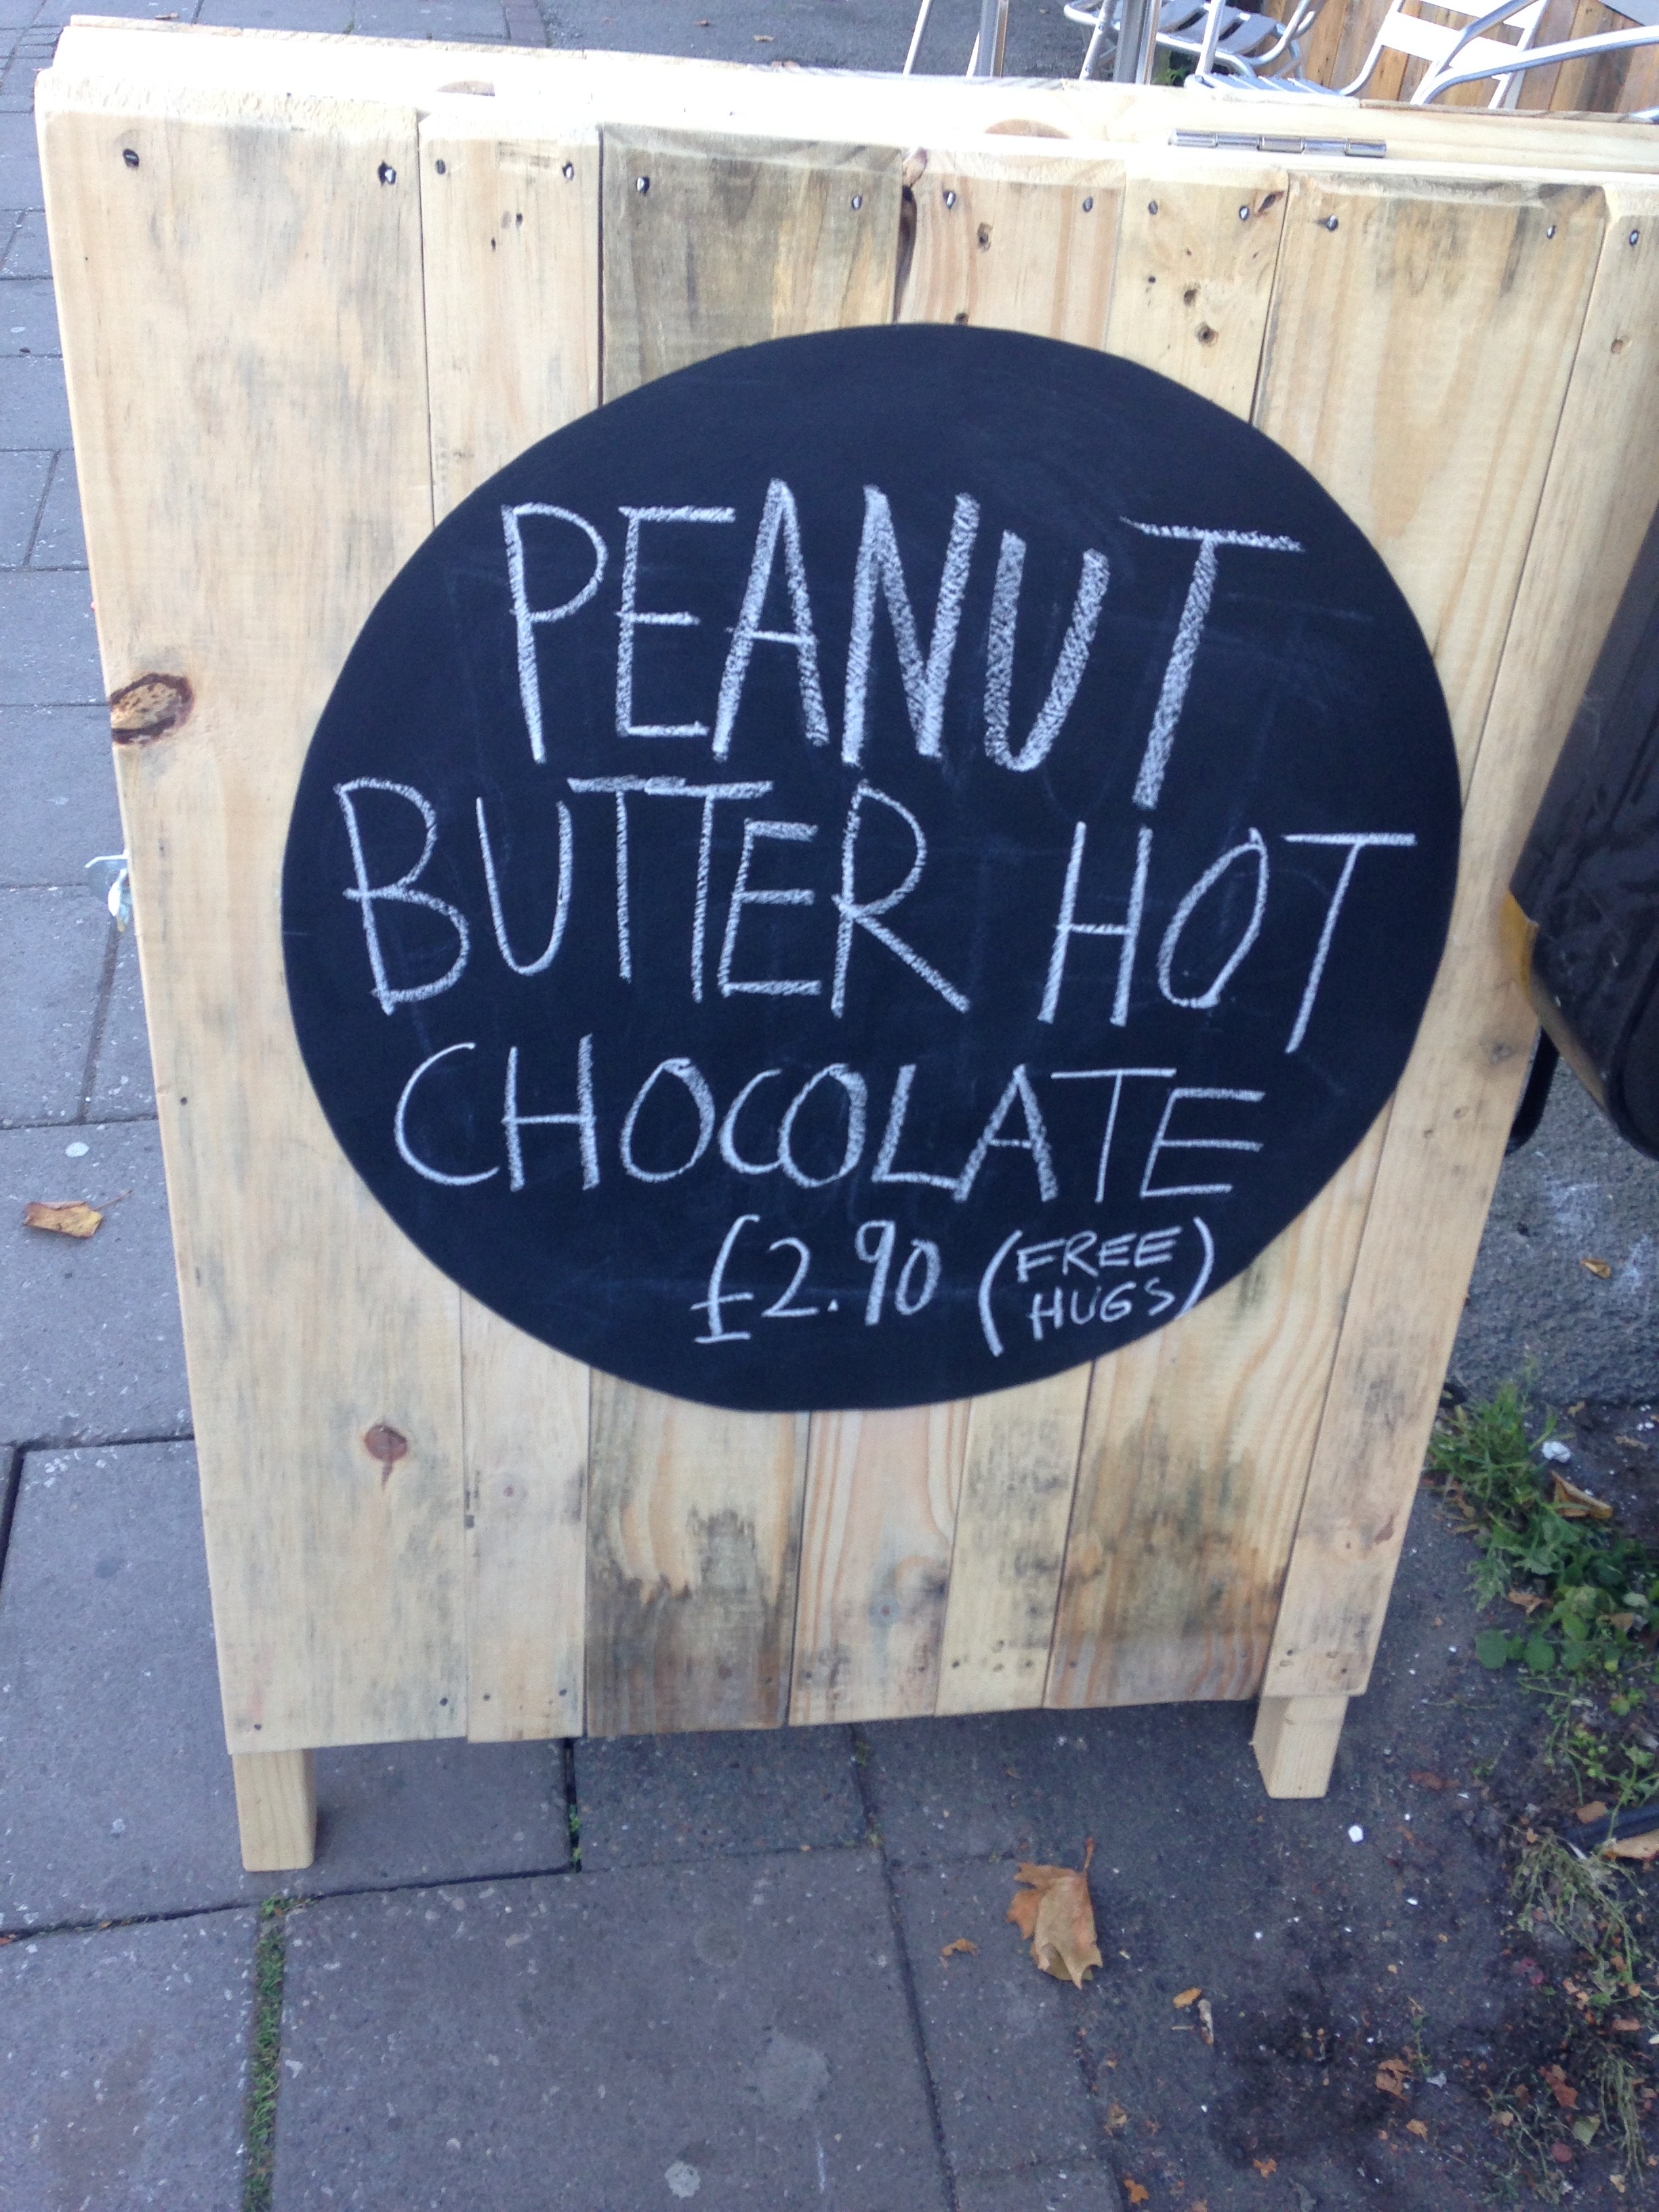 PEANUT
BUTTER HOT
CHOCOLATE
£2.90 (FREE
HUGS)